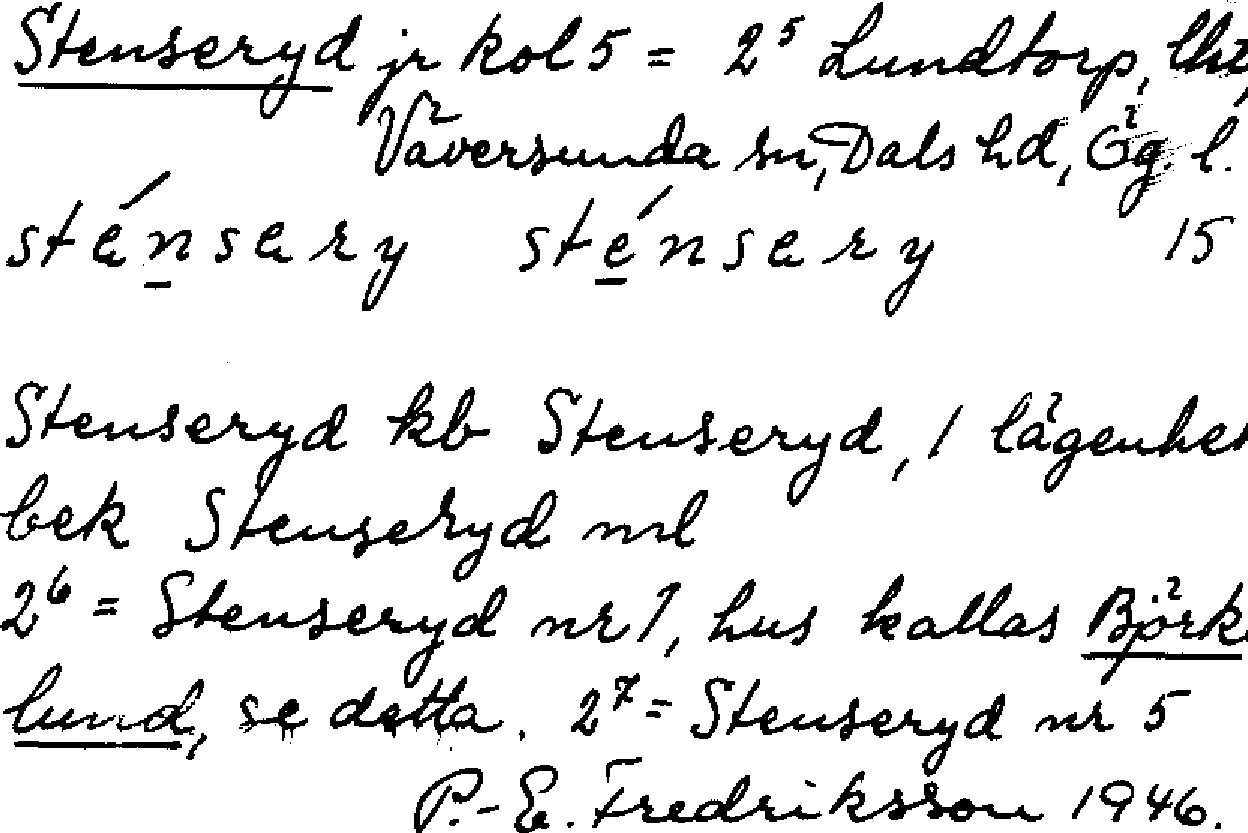 Stenseryd jr kol 5 = 2⁵ Lundtorp, lht,
Väversunda sn, Dals hd, Ög. l.
sténsery sténsery 15
Stenseryd kb Stenseryd, 1 lägenhet
bek Stenseryd ml
2⁶ = Stenseryd nr 1, hus kallas Björk-
lund, se detta. 2⁷ = Stenseryd nr 5
P.-E. Fredriksson 1946.